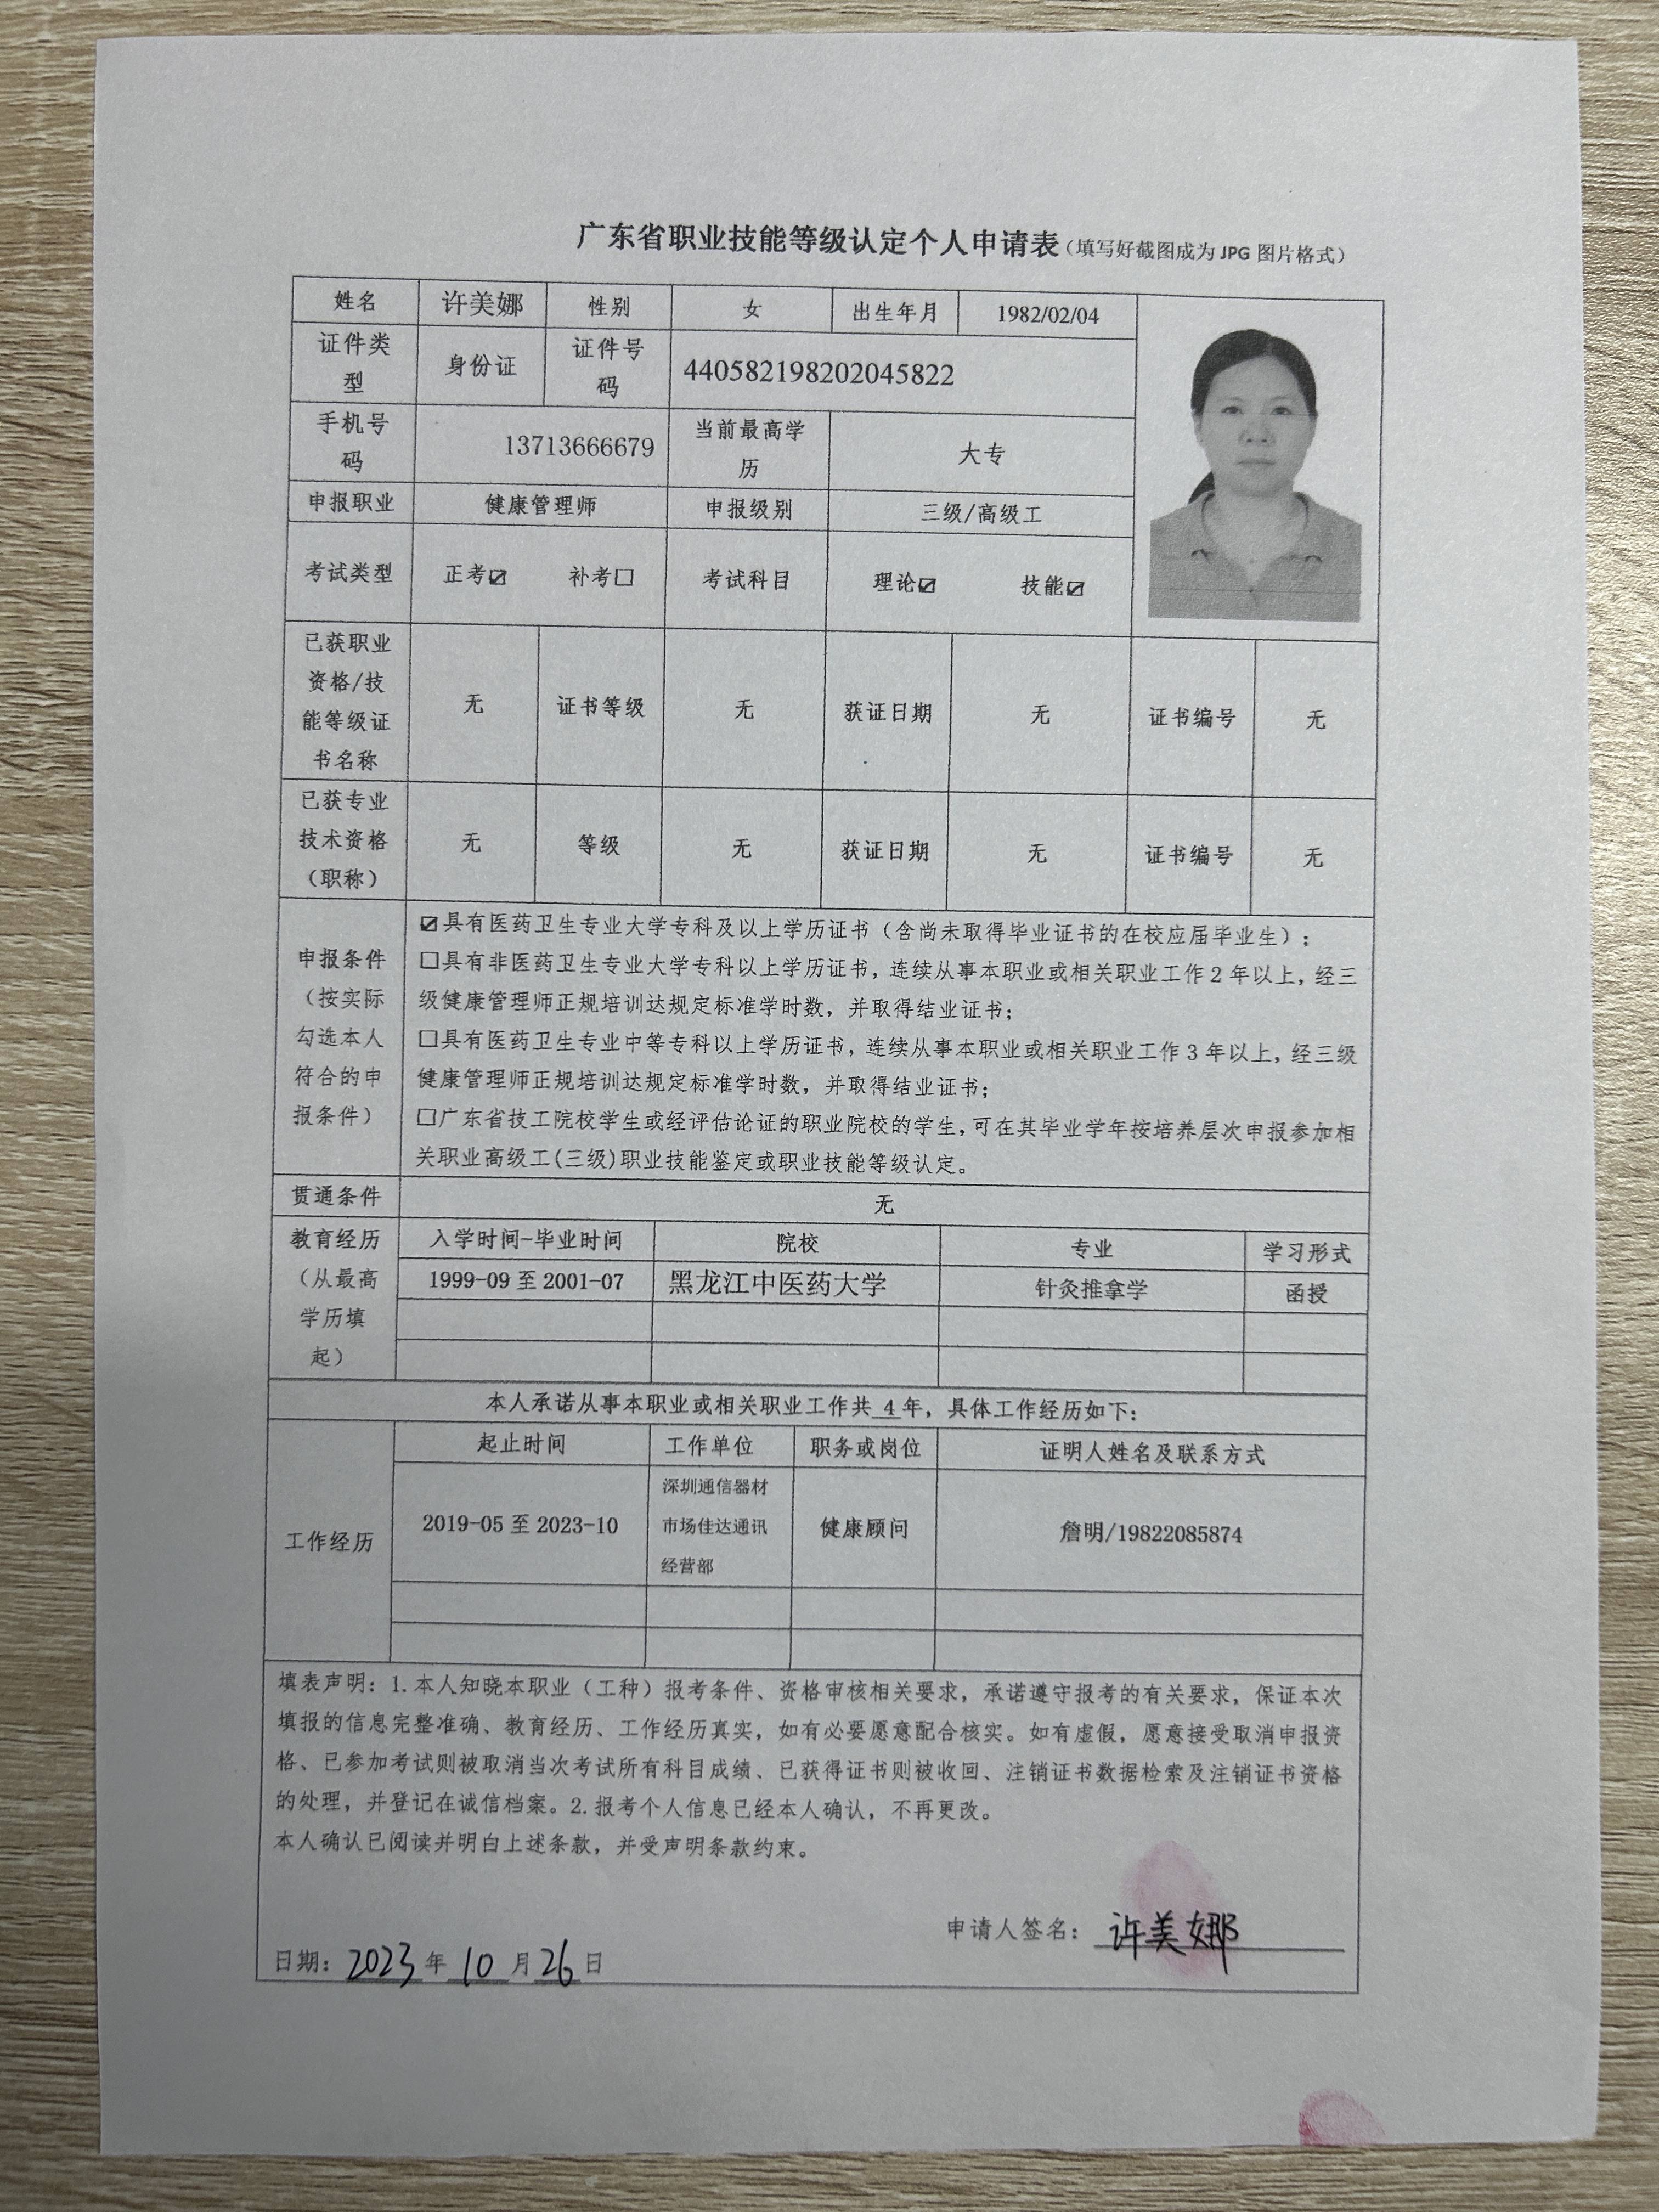 广东省职业技能等级认定个人申请表（填写好截图成为 JPG 图片格式）
姓名 许美娜 性别 女 出生年月 1982/02/04
证件类型 身份证 证件号码 440582198202045822
手机号码 13713666679 当前最高学历 大专
申报职业 健康管理师 申报级别 三级/高级工
考试类型 正考☑ 补考☐ 考试科目 理论☑ 技能☑
已获职业资格/技能等级证书名称 无 证书等级 无 获证日期 无 证书编号 无
已获专业技术资格（职称） 无 等级 无 获证日期 无 证书编号 无
申报条件（按实际勾选本人符合的申报条件）
☑具有医药卫生专业大学专科及以上学历证书（含尚未取得毕业证书的在校应届毕业生）；
☐具有非医药卫生专业大学专科以上学历证书，连续从事本职业或相关职业工作 2 年以上，经三
级健康管理师正规培训达规定标准学时数，并取得结业证书；
☐具有医药卫生专业中等专科以上学历证书，连续从事本职业或相关职业工作 3 年以上，经三级
健康管理师正规培训达规定标准学时数，并取得结业证书；
☐广东省技工院校学生或经评估论证的职业院校的学生，可在其毕业学年按培养层次申报参加相
关职业高级工(三级)职业技能鉴定或职业技能等级认定。
贯通条件 无
教育经历（从最高学历填起） 入学时间-毕业时间 院校 专业 学习形式
1999-09 至 2001-07 黑龙江中医药大学 针灸推拿学 函授
本人承诺从事本职业或相关职业工作共 4 年，具体工作经历如下：
工作经历 起止时间 工作单位 职务或岗位 证明人姓名及联系方式
2019-05 至 2023-10 深圳通信器材市场佳达通讯经营部 健康顾问 詹明/19822085874
填表声明：1.本人知晓本职业（工种）报考条件、资格审核相关要求，承诺遵守报考的有关要求，保证本次
填报的信息完整准确、教育经历、工作经历真实，如有必要愿意配合核实。如有虚假，愿意接受取消申报资
格、已参加考试则被取消当次考试所有科目成绩、已获得证书则被收回、注销证书数据检索及注销证书资格
的处理，并登记在诚信档案。2.报考个人信息已经本人确认，不再更改。
本人确认已阅读并明白上述条款，并受声明条款约束。
申请人签名：许美娜
日期：2023 年 10 月 26 日